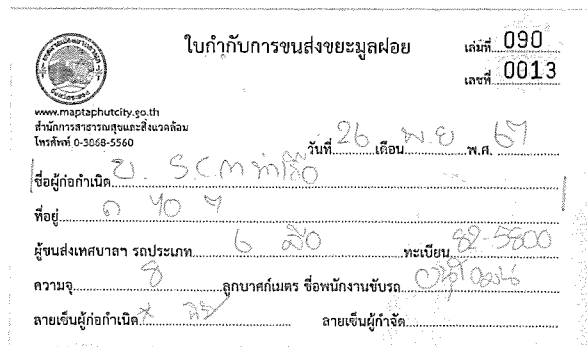 ใบกำกับการขนส่งขยะมูลฝอย
เล่มที่ 090
เลขที่ 0013
www.maptaphutcity.go.th
สำนักการสาธารณสุขและสิ่งแวดล้อม
โทรศัพท์ 0-3868-5560
วันที่ 26 เดือน พ.ย พ.ศ. 67
ชื่อผู้ก่อกำเนิด บ. SCM ท่าเรือ
ที่อยู่
ผู้ขนส่งเทศบาลฯ รถประเภท 6 ล้อ ทะเบียน 82-5800
ความจุ 8 ลูกบาศก์เมตร ชื่อพนักงานขับรถ
ลายเซ็นผู้ก่อกำเนิด ลายเซ็นผู้กำจัด